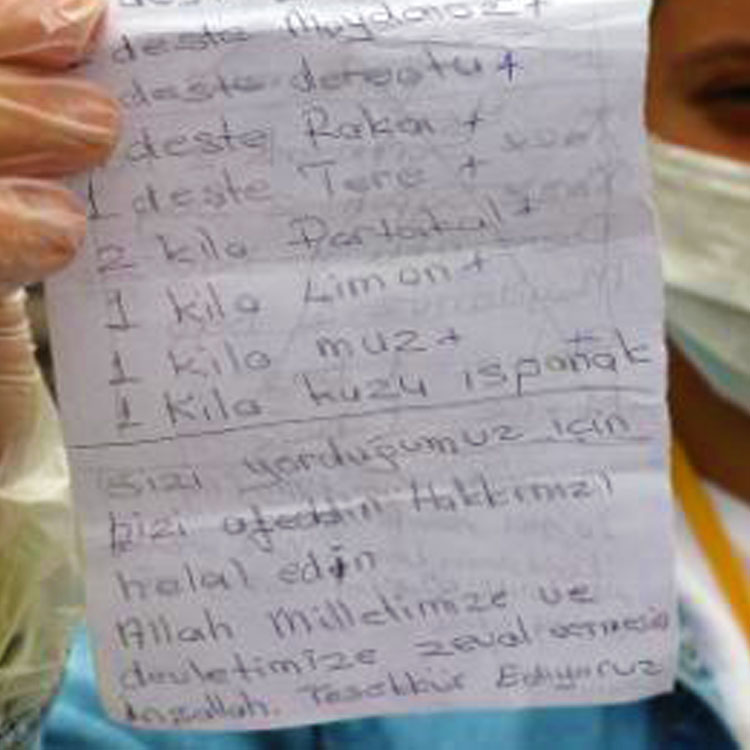 deste Maydanoz +
deste dereotu +
deste Roka +
1 deste Tere +
2 kilo Portakal +
1 kilo Limon +
1 kilo muz +
1 kilo kuzu ıspanak +
Sizi yorduğumuz için
bizi afeddin Hakkınızı
helal edin
Allah Milletimize ve
devletimize zeval vermesin
İnşallah. Teşekkür Ediyoruz